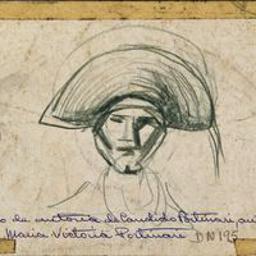 o de autoria de Candido Portinari, ou
Maria Victoria Portinari DN195